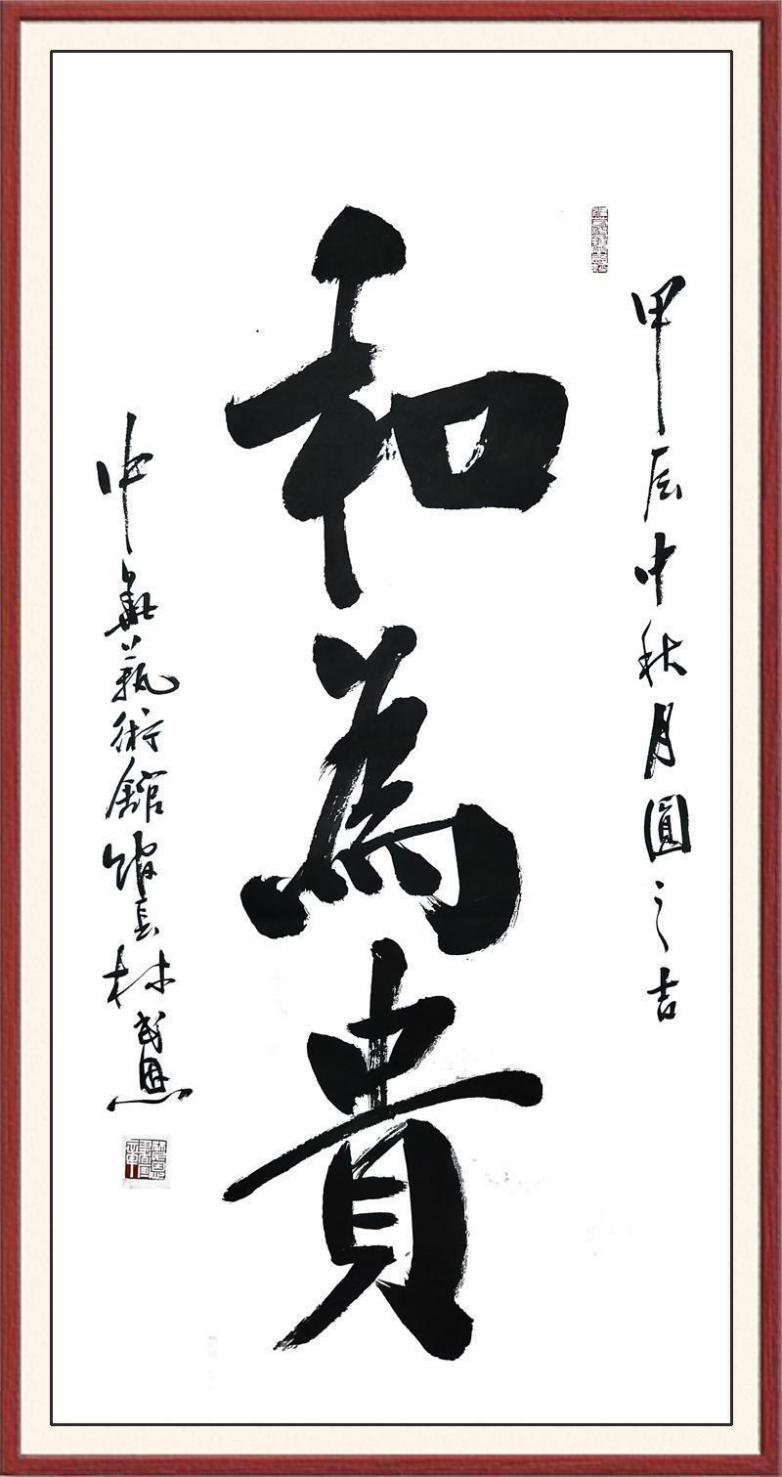 甲辰中秋月圓之吉
和為貴
中華藝術館館長林